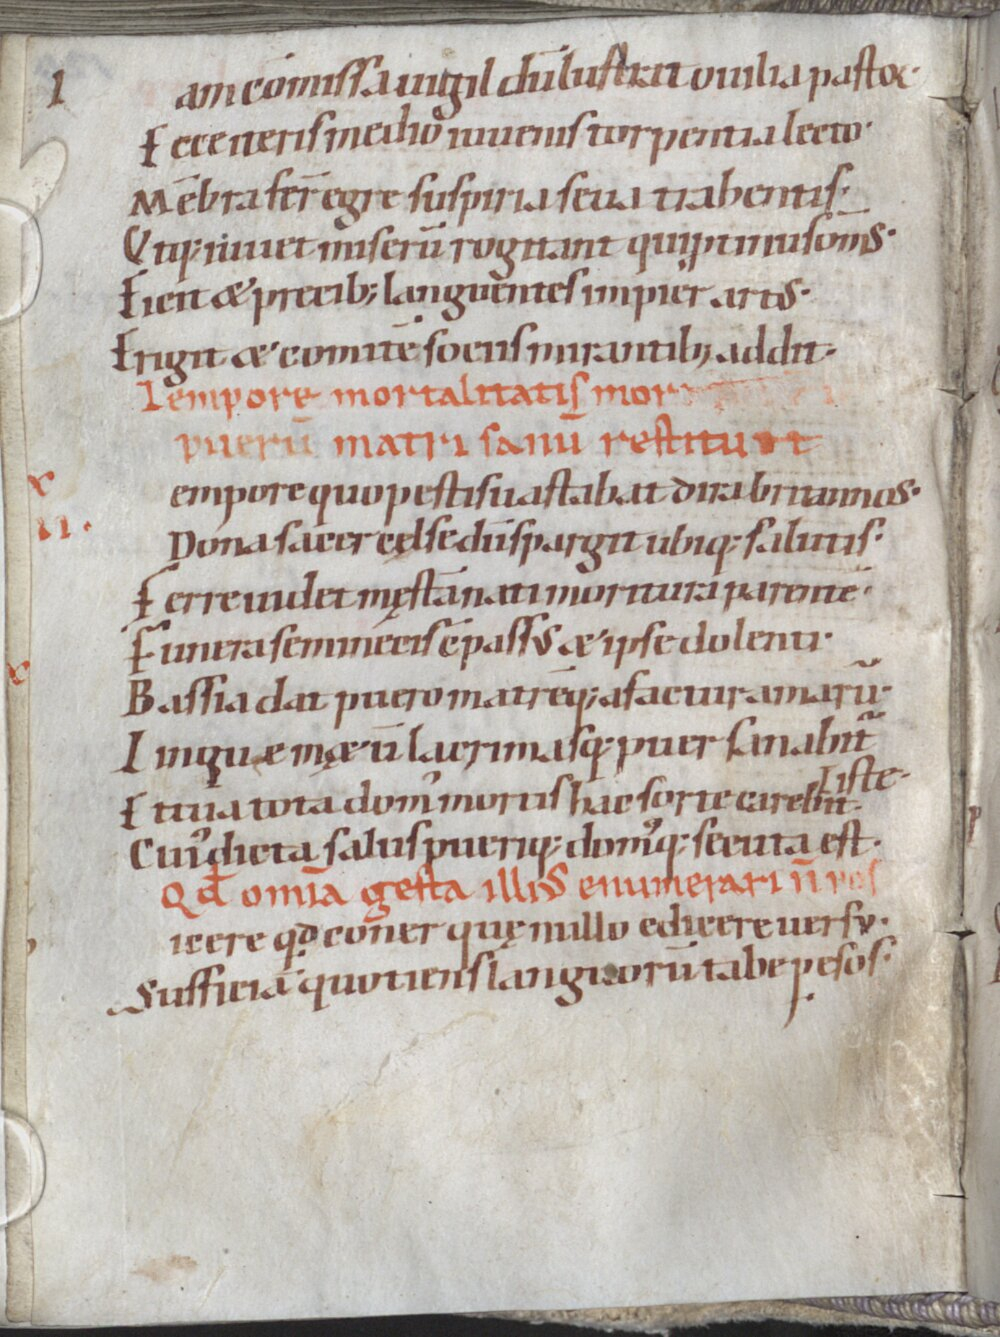 I am cōmissa uigil dū lustrat ouilia pastor·
Ecce ueris medio iuuenis torpentia lecto·
Mēbra fert̄ egre suspiria seua trahentis·
Utq; iuuet miserū rogitant qui ipi·
Fien & precib; languentes artis·
Erigit & comitē sociis mirantib; addit·
Tempore mortalitatis mor
puerū matri sanū restituit
x
empore quo pestis uastabat dira britannos·
ii.
Dona sacer celse dū spargit ubiq; salutis·
Ferre uidet męstā nati moritura parentē·
Funera seminecis ēpassus & ipse dolenti·
x
Bassia dat puero matrēq; affatur amarū·
Linque mętū lacrimasq; puer sanabit̄
iste·
Et tua tota dom' mortis hac sorte carebit·
Cui' dicta salus pueriq; dom'q; secuta est·
Qd omīa gesta illius enumerari n̄ pos
icere qd coner quę nullo edicere uersu·
Sufficiā quotiens languorū tabe pesos·